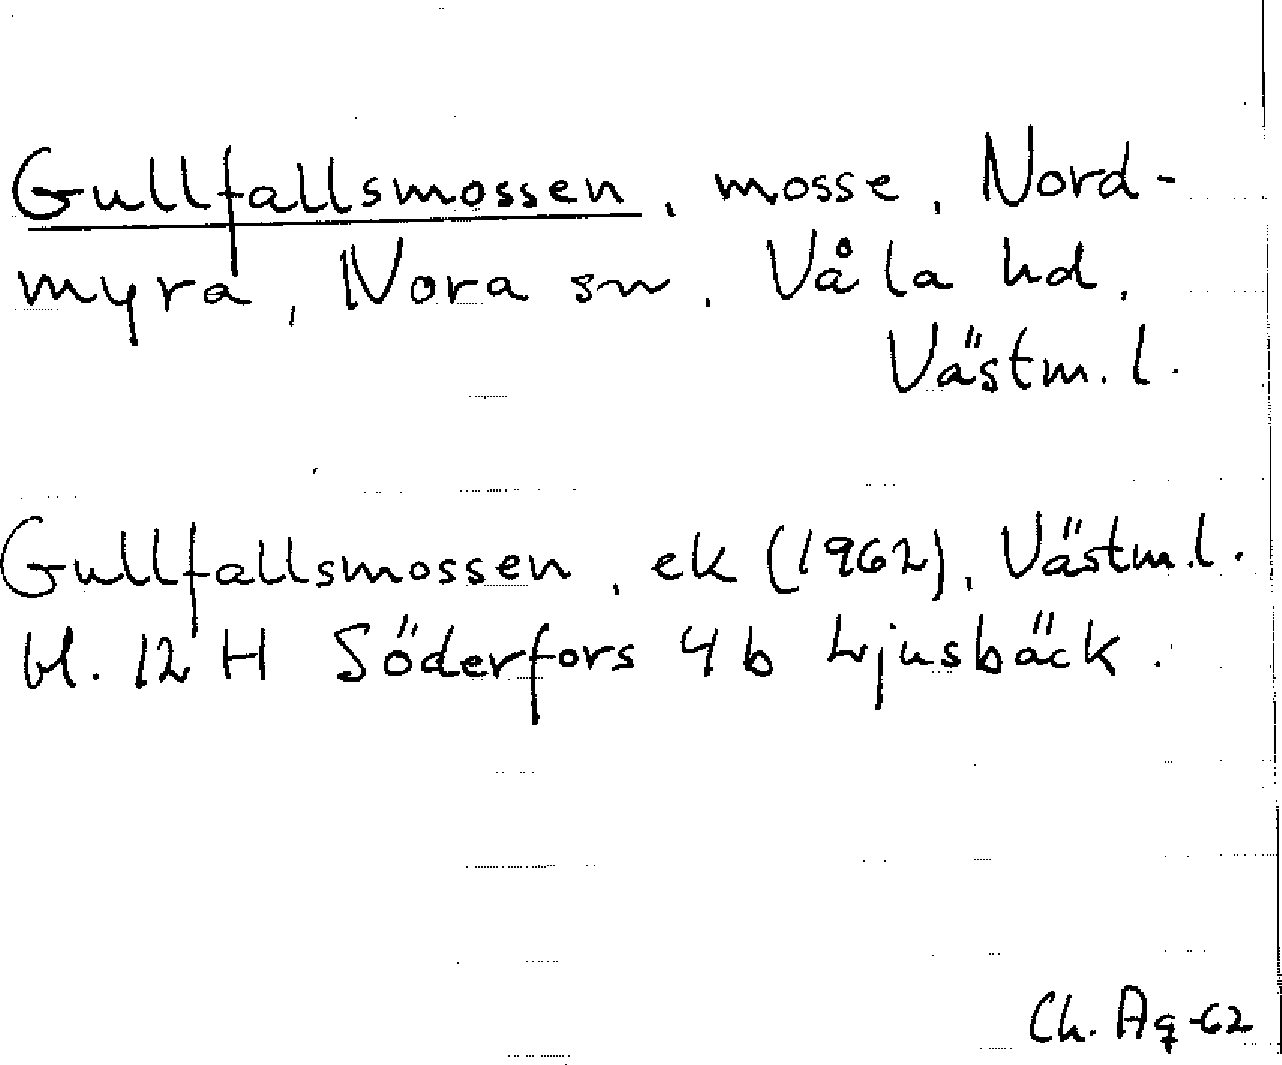 Gullfallsmossen, mosse, Nord-
myra, Nora sn, Våla hd,
Västm. l.
Gullfallsmossen, ek (1962), Västm.l.
bl. 12 H Söderfors 4 b Ljusbäck.
Ch. Ag -62